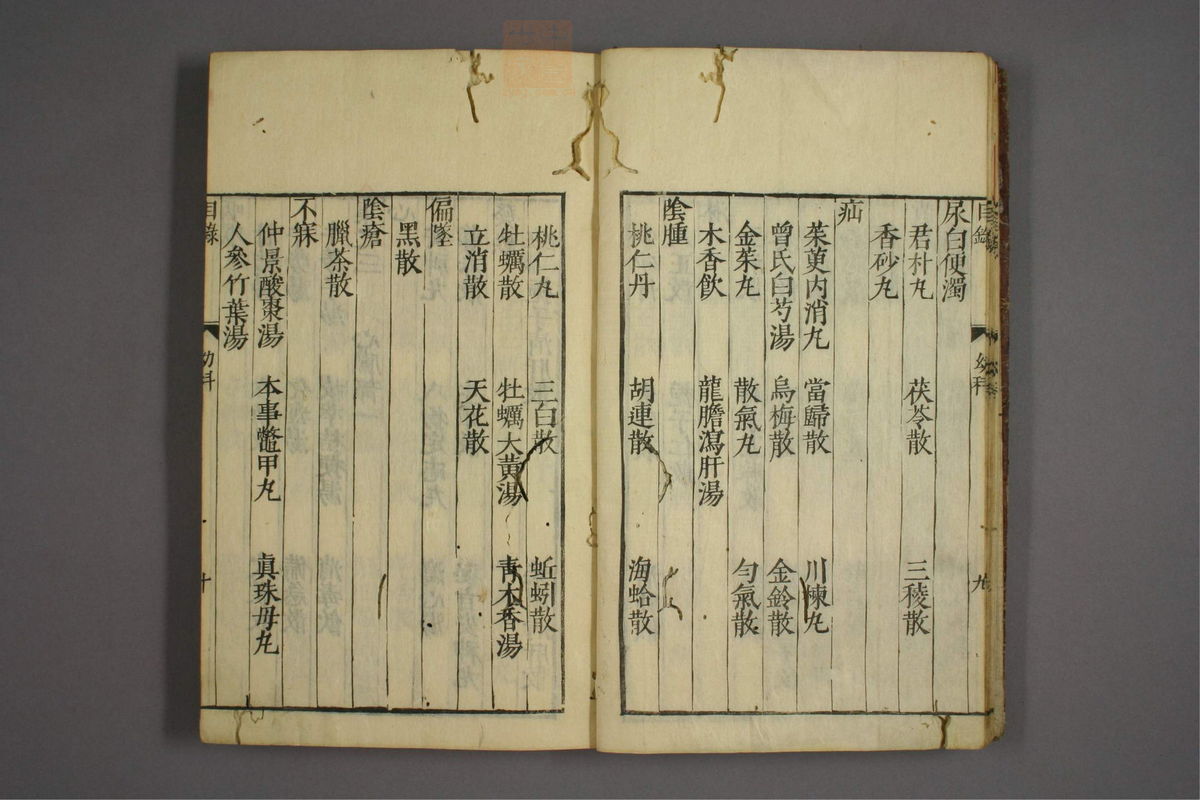 目錄
幼科
九
尿白便濁
君朴丸 茯苓散 三稜散
香砂丸
疝
茱萸内消丸 當歸散 川楝丸
曾氏白芍湯 烏梅散 金鈴散
金茱丸 散氣丸 勻氣散
木香飲 龍膽瀉肝湯
陰腫
桃仁丹 胡連散 海蛤散
桃仁丸 三白散 蚯蚓散
牡蠣散 牡蠣大黃湯 青木香湯
立消散 天花散
偏墜
黑散
陰瘡
臘茶散
不寐
仲景酸棗湯 本事鱉甲丸 真珠母丸
人參竹葉湯
目錄
幼科
十